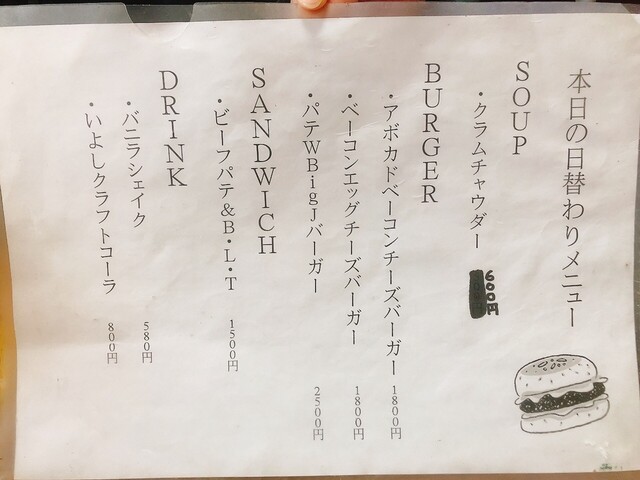 本日の日替わりメニュー
SOUP
・クラムチャウダー 600円
BURGER
・アボカドベーコンチーズバーガー 1800円
・ベーコンエッグチーズバーガー 1800円
・パテWBigJバーガー 2500円
SANDWICH
・ビーフパテ&B・L・T 1500円
DRINK
・バニラシェイク 580円
・いよしクラフトコーラ 800円